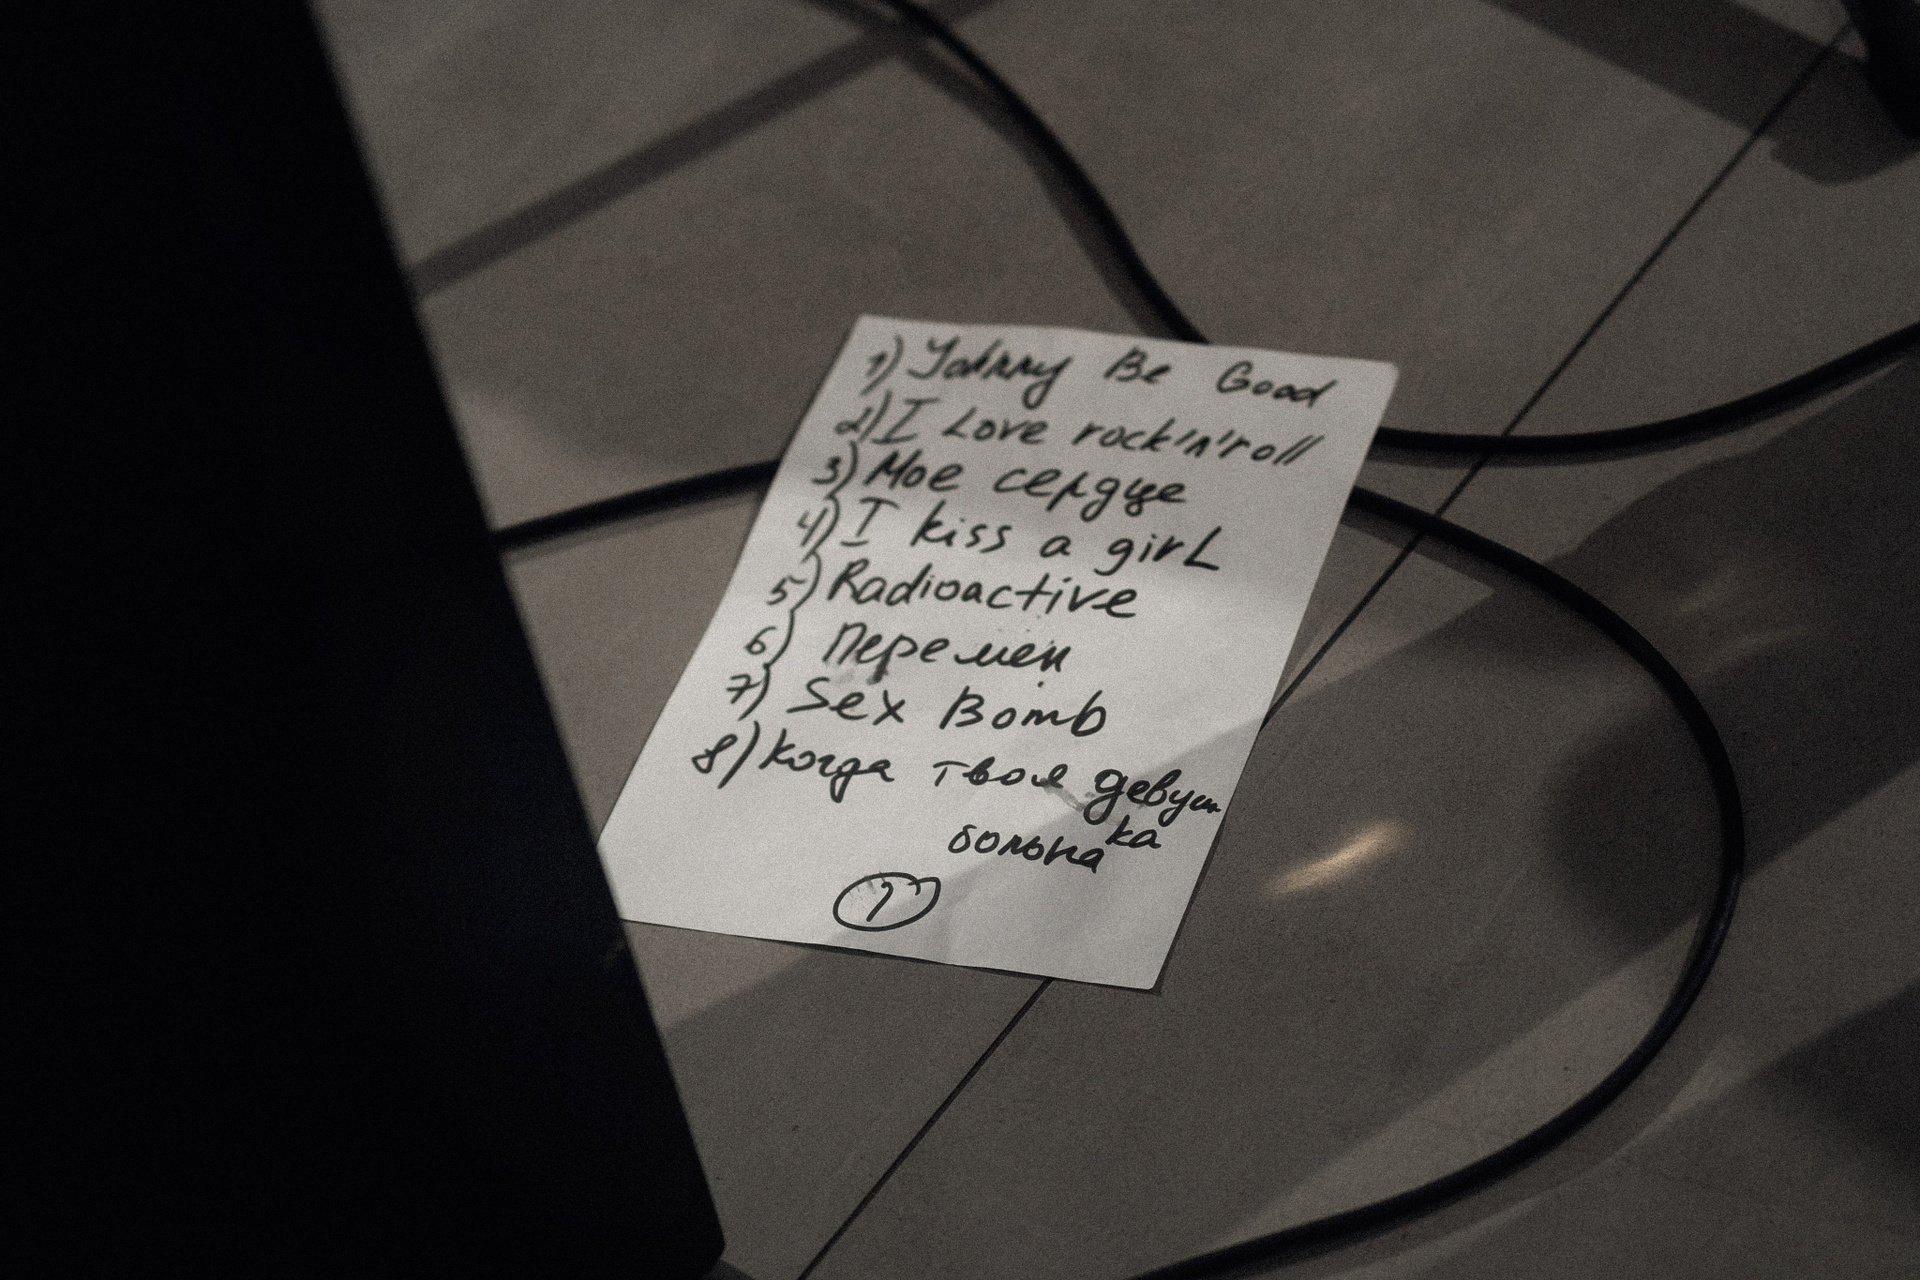 1) Johnny Be Good
2) I Love rock'n'roll
3) Мое сердце
4) I kiss a girL
5) Radioactive
6) Перемен
7) Sex Bomb
8) Когда твоя девуш-
ка
больна
1